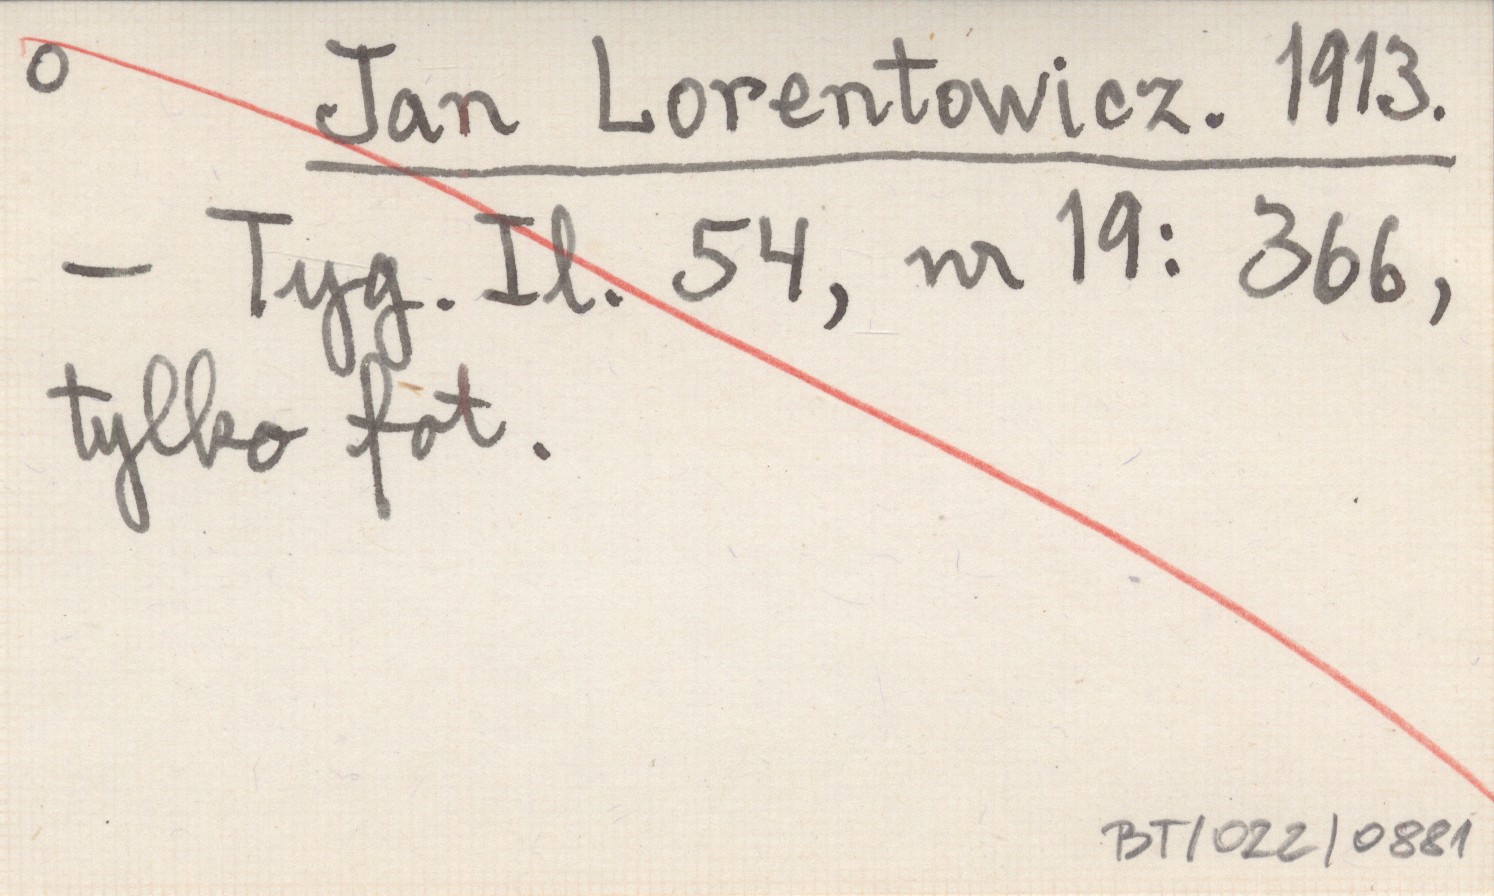 o Jan Lorentowicz. 1913.
– Tyg. Il. 54, nr 19: 366,
tylko fot.
BT/022/0881